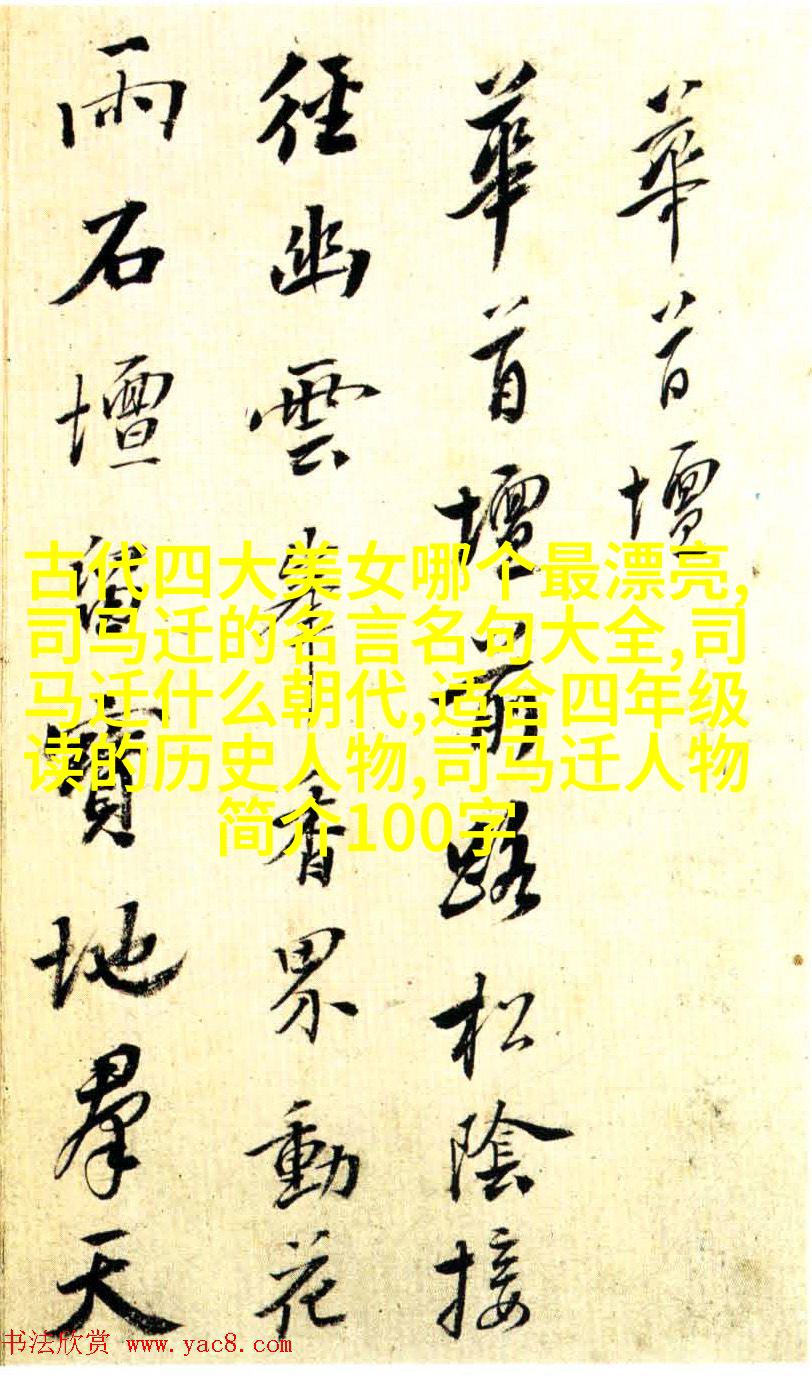 華首壇
華首壇前路松陰接
徑幽雲香界動花
雨石壇寶地羣天
古代四大美女哪个最漂亮,
司马迁的名言名句大全,司
马迁什么朝代,适合四年级
读的历史人物,司马迁人物
简介100字
书法欣赏 www.yac8.com